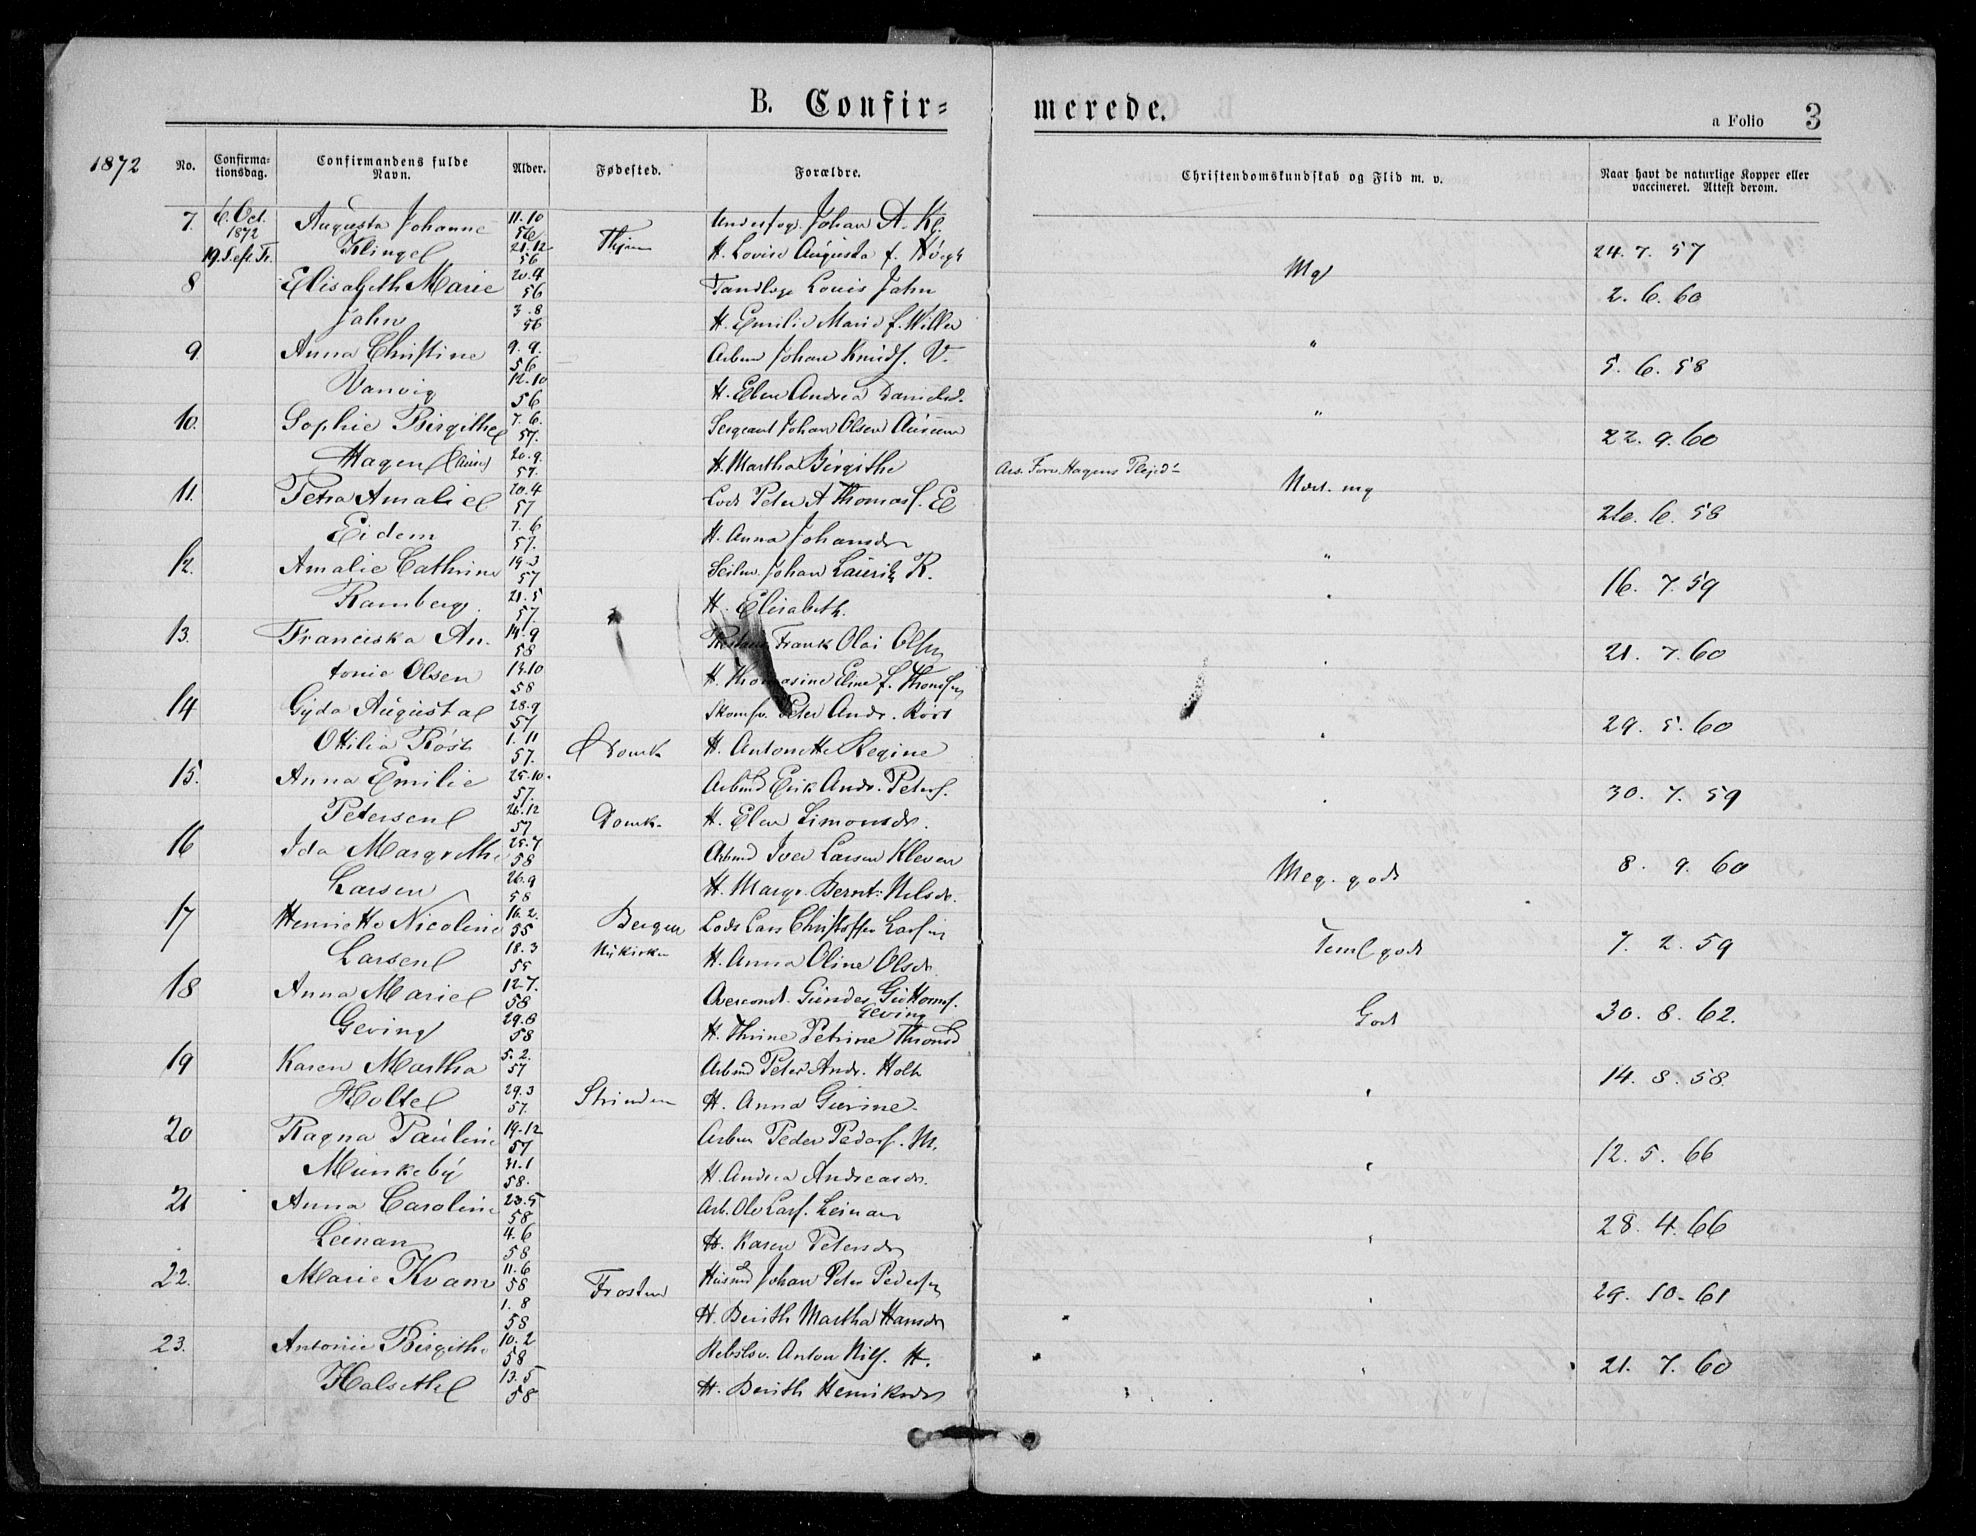 B. Confir=
merede.
a Folio 3
1872
No.
Confirma-
tionsdag.
Confirmandens fulde
Navn.
Alder.
Fødested.
Forældre.
Christendomskundskab og Flid m. v.
Naar havt de naturlige Kopper eller
vaccineret. Attest derom.
7. 6. Oct. Augusta Johanne 11.10 Johan A. Kl.
1872 56
19. S. eft. Tr. Klingel 21.12 H. Lovise Augusta f. 24. 7. 57
56 Mgt
8 Elisabeth Marie 20.4 Tandlæge Louis Jahn 2. 6. 60
56
Jahn 3.8 H. Emilie Marie f.
56
9. Anna Christine 9.9. Arbm Johan Knuds. V. "
56 5. 6. 58
Vanvig 12.10 H. Elen Andrea Danielsd.
56 "
10. Sophie Birgithe 7.6. Sergeant Johan Olsen Aunum
57. 22. 9. 60
Hagen 20.9. H. Martha Birgithe Plejed.
57.
11. Petra Amalie 20.4 Lods Peter A Thomas. E Næst. mg
57 26. 6. 58
Eidem 7.6 H. Anna Johansdr
57.
12. Amalie Cathrine 19.3 Johan Lauritz R. "
57 16. 7. 59
Ramberg. 21.5 H. Elisabeth.
57.
13. Franciska An- 14.9 Frank Olai Olsen
58 21. 7. 60
tonie Olsen 13.10 H. Thomasine Eline f. Thomsen
58
14 Gyda Augusta 28.9 Peter Andr. Röst
57 29. 5. 60
Ottilia Röst 1.11 Domk H. Antonette Regine
57.
15. Anna Emilie 25.10. Arbmd Erik Andr. Peters.
57. 30. 7. 59
Petersen 26.12 Domk. H. Elen Simonsdr.
57
16 Ida Margrethe 25.7 Arbmd Iver Larsen Kleven
58 8. 9. 60
Larsen 26.9 H. Margr. Bernt. Nilsdr. Meg. godt
58
17 Henriette Nicoline 16.2. Bergen Lods Lars Christoffer Larsen
55 7. 2. 59
Larsen 18.3 Nykirken H. Anna Oline Olsdr. Teml godt
55
18 Anna Marie 12.7. Gunder Guttorms.
58 Geving 30. 8. 62.
Geving 29.8 H. Thrine Petrine Thronsd Godt
58
19 Karen Martha 5.2. Arbmd Peter Andr. Holte
57 14. 8. 58.
Holte 29.3 Strinden H. Anna Gurine.
57.
20 Ragna Pauline 19.12 Arbm Peder Peders. M.
57 12. 5. 66
Munkeby 31.1 H. Andrea Andreasdr.
58.
21 Anna Caroline 23.5 Arb. Ole Lars. Leinan
58 28. 4. 66
Leinan 4.6 H. Karen Petersdr
58
22. Marie Kvam 11.6 Frosten Husmd Johan Peter Pedersen
58 29. 10. 61
1.8 H. Berith Martha Hansdr
58
23. Antonie Birgithe 10.2 Rebslsv. Anton Nils. H.
58 21. 7. 60
Halseth 13.5 H. Berith Henriksdr
58